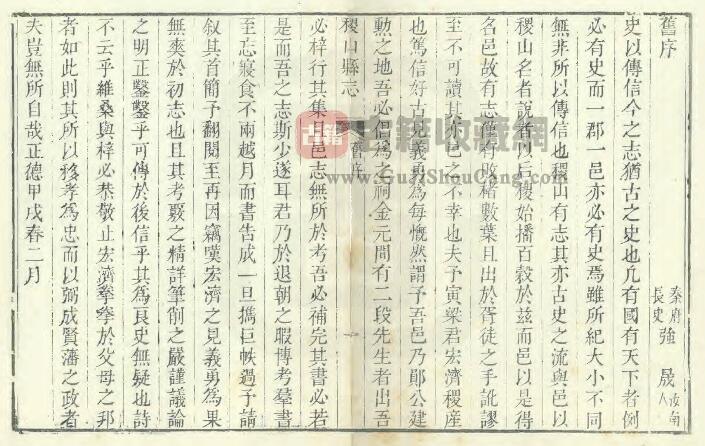 舊序
秦府長史強晟汝南人
史以傳信今之志猶古之史也凡有國有天下者例
必有史而一郡一邑亦必有史焉雖所紀大小不同
無非所以傳信也稷山有志其亦古史之流與邑以
稷山名者說者以后稷始播百穀於茲而邑以是得
名邑故有志僅有故楮數葉且出於胥徒之手訛謬
至不可讀其亦邑之不幸也夫予寅梁君宏濟稷產
也篤信好古見義勇為每慨然謂予吾邑乃鄖公建
勲之地吾必倡為之祠金元間有二段先生者出吾
稷山縣志
舊序
必梓行其集且邑志無所於考吾必補完其書必若
是而吾之志斯少遂耳君乃於退朝之暇博考羣書
至忘寢食不兩越月而書告成一旦擕巨帙過予請
叙其首簡予翻閱至再因竊嘆宏濟之見義勇為果
無爽於初志也且其考覈之精詳筆削之嚴謹議論
之明正鑿鑿乎可傳於後信乎其為良史無疑也詩
不云乎維桑與梓必恭敬止宏濟拳拳於父母之邦
者如此則其所以移孝為忠而以弼成賢藩之政者
夫豈無所自哉正德甲戌春二月
古籍收藏網
www.GuJiShouCang.com